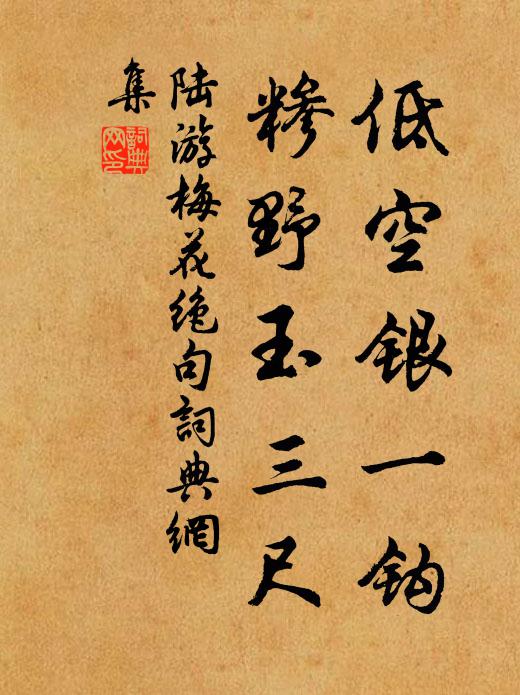 低空银一钩
糁野玉三尺
陆游梅花绝句詞典網
集
詞典
网印